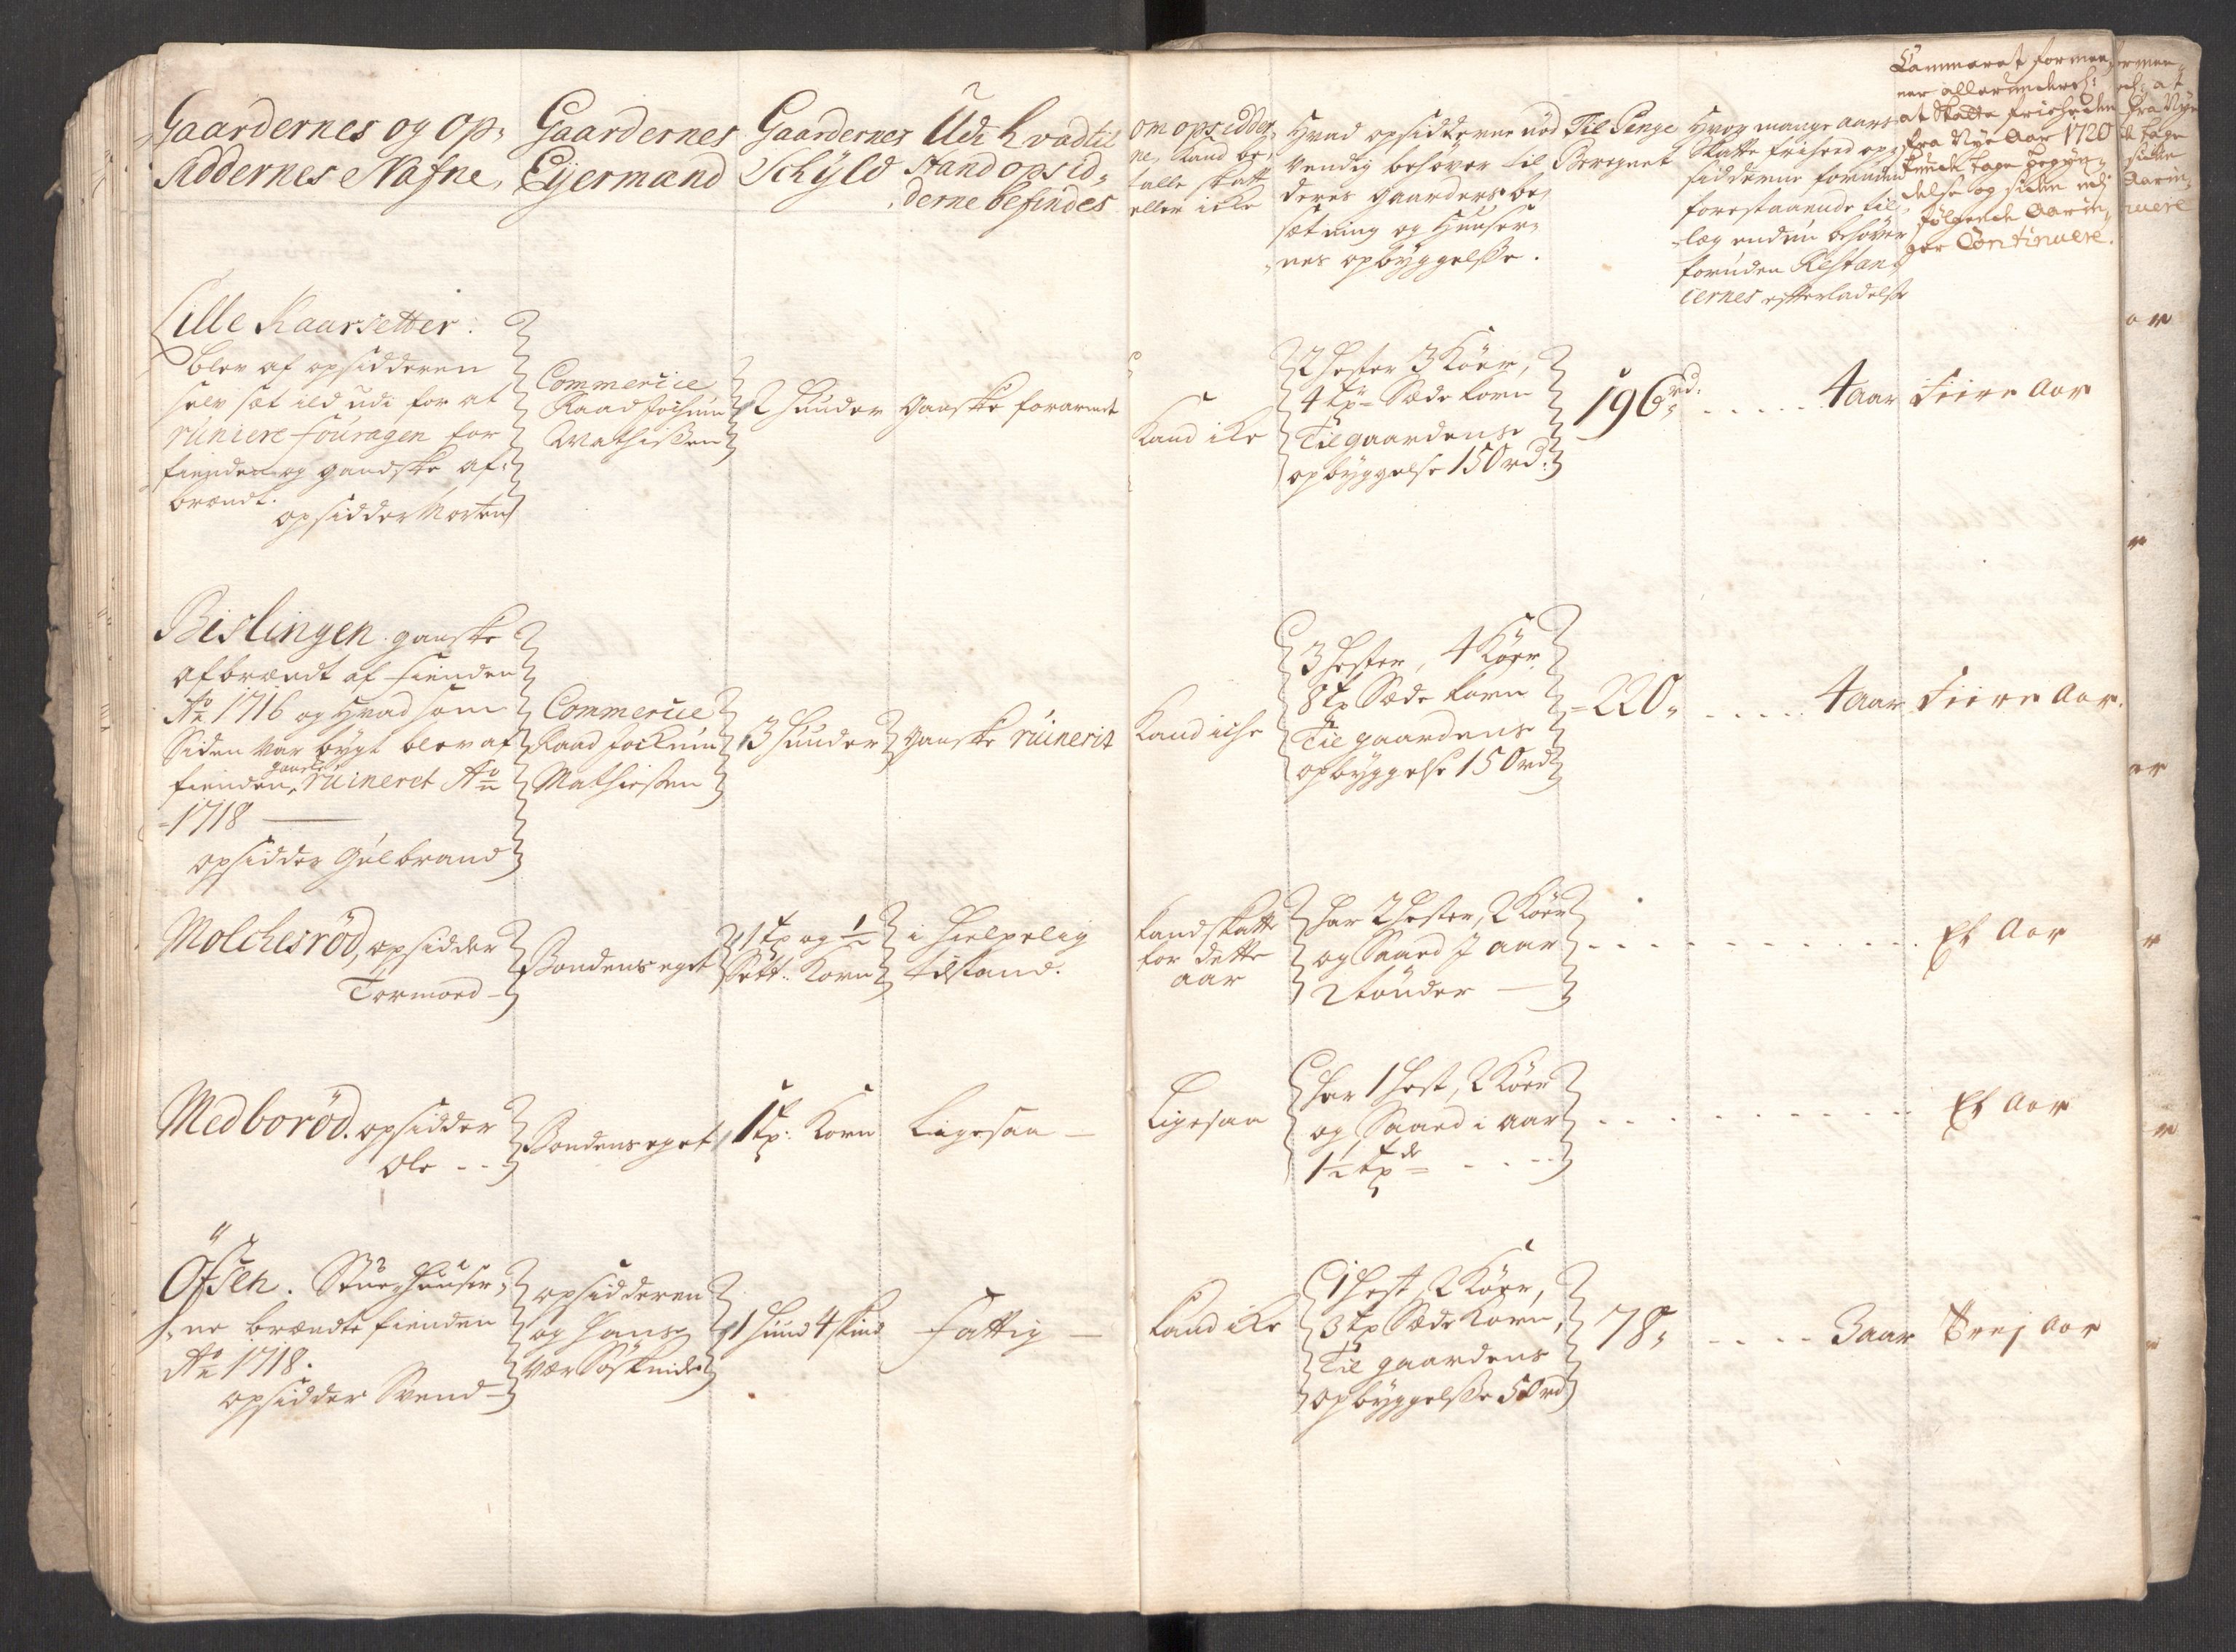 Gaardernes og Op-
siddernes Nafne,
Gaardernes
Eijermand
Gaardernes
Schÿld
Udi hvad til
stand opsid-
derne befindes
om opsidder-
ne kand be-
talle skatt
eller icke
Hvad opsidderne nød
vendig behøver til
deres gaarders be-
sætning og Huuser-
nes opbyggelsse.
Til Penge
Beregnet
Hvor mange aars
Skatte frihed op-
sidderne foruden
forestaaende til-
læg endnu behøver
foruden Restan-
cernes efterladelse
Cammeret formee-
ner allerunderd:
at Skatte friheden
fra Nye Aar 1720
kunde tage begÿn-
delse og siden udi
følgende Aarin-
ger Continuere.
Lille Kaarsetter.
blev af opsidderen
selv sæt ild udi for at
ruinere fouragen for
fienden og gandske af-
brændt.
opsidder Morten
Commercie
Raad Jochum
Mathissen
2 Hunder
ganske forarmt
Kand icke
2 Hester 3 Køer,
4 tp Sæde korn
Til gaardens
opbyggelse 150 rd:
196 rd:
4 aar
Fiire Aar
Bislingen ganske
afbrændt af fienden
Ao 1716 og hvad som
Siden var bygt blev af
fienden ganske ruineret Ao
1718
opsidder Gulbrand
Commercie
Raad Jochum
Mathiessen
3 Hunder
ganske ruinerit
Kand iche
3 Hester, 4 Køer
8 tp Sæde korn
Til gaardens
opbyggelse 150 rd
220
4 aar
Fiire Aar.
Molchesrød, opsidder
Tormoed
Bondens eget
1 tp og 1/2
Sett: Korn
i Hielpelig
tilstand.
kand skatte
for dette
aar
har 2 Hester, 2 Køer
og Saaed J aar
2 tønder
Et Aar
Medborød. opsidder
Ole
Bondens eget
1 tp: Korn
Ligesaa
Ligesaa
har 1 Hest, 2 Køer
og Saaed i aar
1 1/2 tp
Et Aar
Öfsen. Stue Huuser-
ne brændte fienden
Ao 1718.
opsidder Svend
opsidderen
og Hans
vær Søskende
1 Hund 4 skind
Fattig
kand icke
1 Hest, 2 Køer,
3 tp Sæde Korn,
Til gaardens
opbyggelsse 50 rd
78
3 aar
Trej Aar